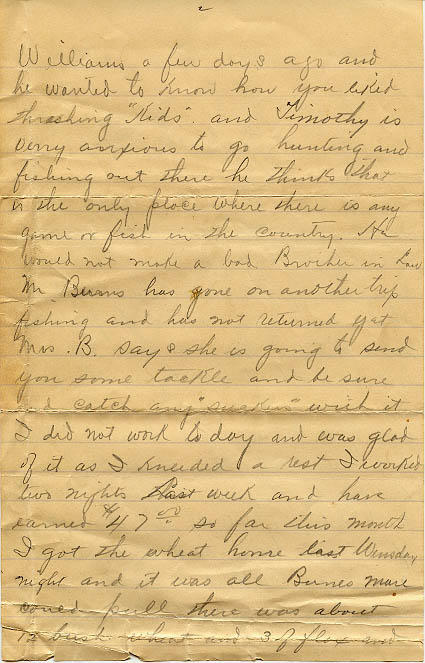 2
Williams a few days ago and
he wanted to know how you liked
thrashing "Kids". and Timothy is
verry anxious to go hunting and
fishing out there he thinks that
is the only place where there is any
game or fish in the country. Ha
would not make a bad Brother in Law
Mr Burns has gone on another trip
fishing and has not returned yet
Mrs. B. says she is going to send
you some tackle and be sure
catch any "suckers" with it
I did not work to day and was glad
of it as I kneeded a rest I worked
two nights last week and have
earned $47.00 so far this month
I got the wheat home last Wensday
night and it was all Burnes mare
could pull there was about
12 bush wheat and 3 of flox and